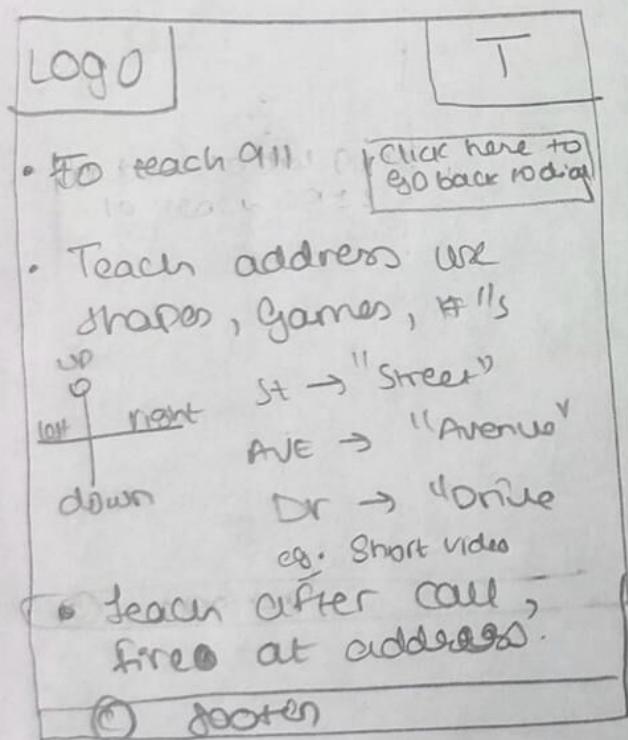 Logo
T
• To teach 911
Click here to
go back to dial
• Teach address use
shapes, games, #'s
up
left right
down
St → "Street"
AVE → "Avenue"
Dr → "Drive
eg. Short video
• teach after call,
fire at address.
© footer